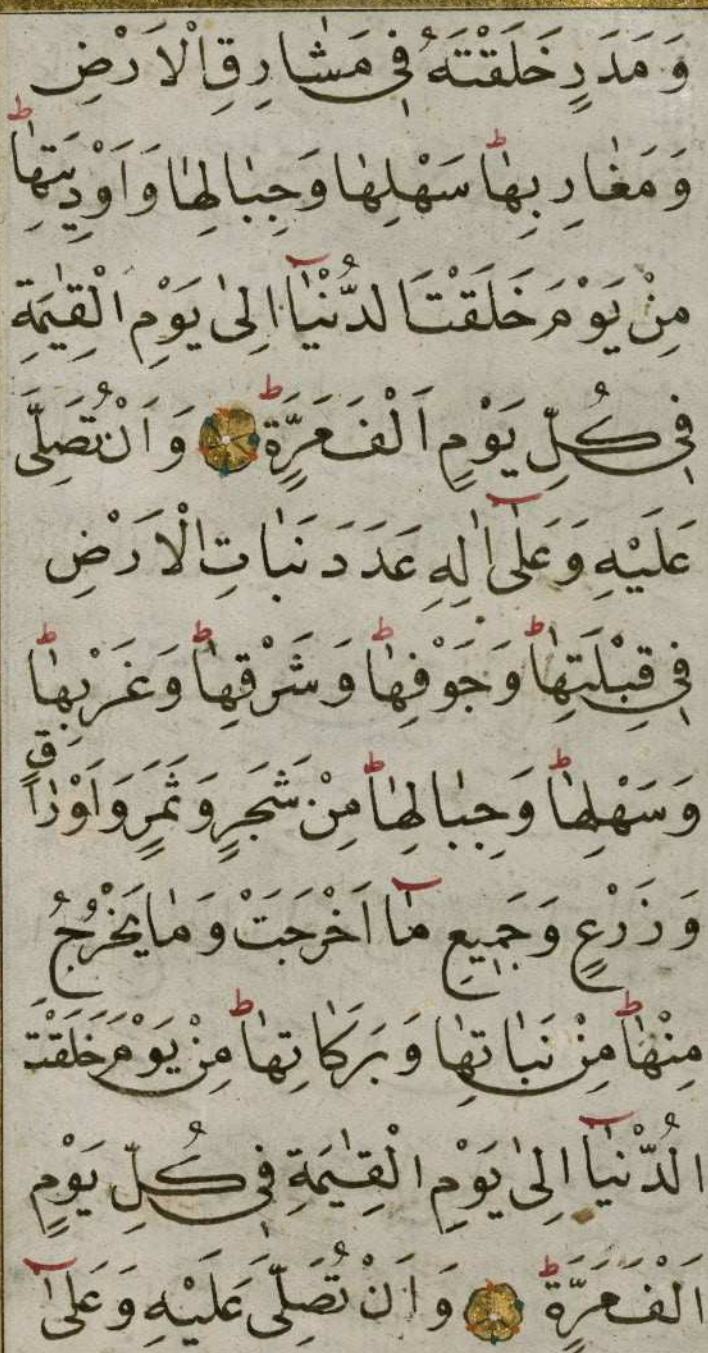 وَ مَدَرٍ خَلَقْتَهُ فِى مَشٰارِقِ الْاَرْضِ
وَ مَغٰارِبِهٰا ط سَهْلِهٰا وَجِبٰالِهٰا وَاَوْدِيَتِهٰا ط
مِنْ يَوْمَ خَلَقْتَ الدُّنْيٰآ اِلىٰ يَوْمِ الْقِيٰمَةِ
فِى كُلِّ يَوْمٍ اَلْفَ مَرَّةٍ ط وَ اَنْ تُصَلِّىَ
عَلَيْهِ وَ عَلىٰٓ اٰلِهِ عَدَدَ نَبٰاتِ الْاَرْضِ
فِى قِبْلَتِهٰا ط وَ جَوْفِهٰا ط وَ شَرْقِهٰا ط وَ غَرْبِهٰا ط
وَ سَهْلِهٰا ط وَ جِبٰالِهٰا ط مِنْ شَجَرٍ وَ ثَمَرٍ وَ اَوْرٰاقٍ
وَ زَرْعٍ وَ جَمِيعِ مٰٓا اَخْرَجَتْ وَ مٰا يَخْرُجُ
مِنْهٰا ط مِنْ نَبٰاتِهٰا وَ بَرَكٰاتِهٰا ط مِنْ يَوْمَ خَلَقْتَ
الدُّنْيٰآ اِلىٰ يَوْمِ الْقِيٰمَةِ فِى كُلِّ يَوْمٍ
اَلْفَ مَرَّةٍ ط وَ اَنْ تُصَلِّىَ عَلَيْهِ وَ عَلىٰٓ ا